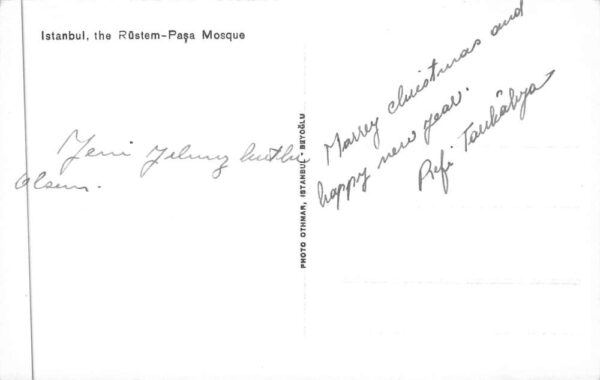 Istanbul, the Rüstem-Paşa Mosque
Yeni Yılınız kutlu
olsun.
PHOTO OTHMAR, ISTANBUL - BEYOĞLU
Marrey christmas and
happy new year.
Refi